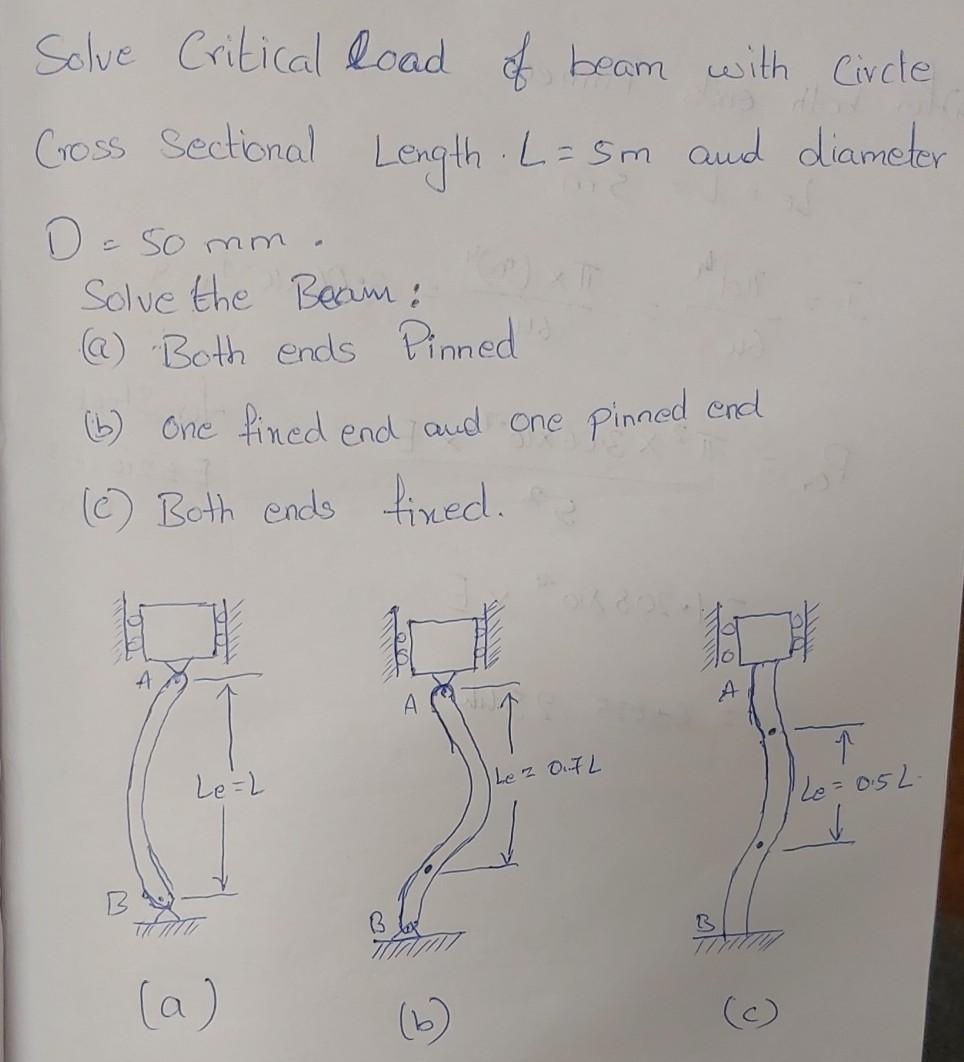 Solve Critical load of beam with Circle
Cross Sectional Length. L = 5m and diameter
D = 50 mm.
Solve the Beam:
(a) Both ends Pinned
(b) one fixed end and one pinned end
(c) Both ends fixed.
A
Le = L
B
(a)
A
Le = 0.7L
B
(b)
A
Le = 0.5L
B
(c)